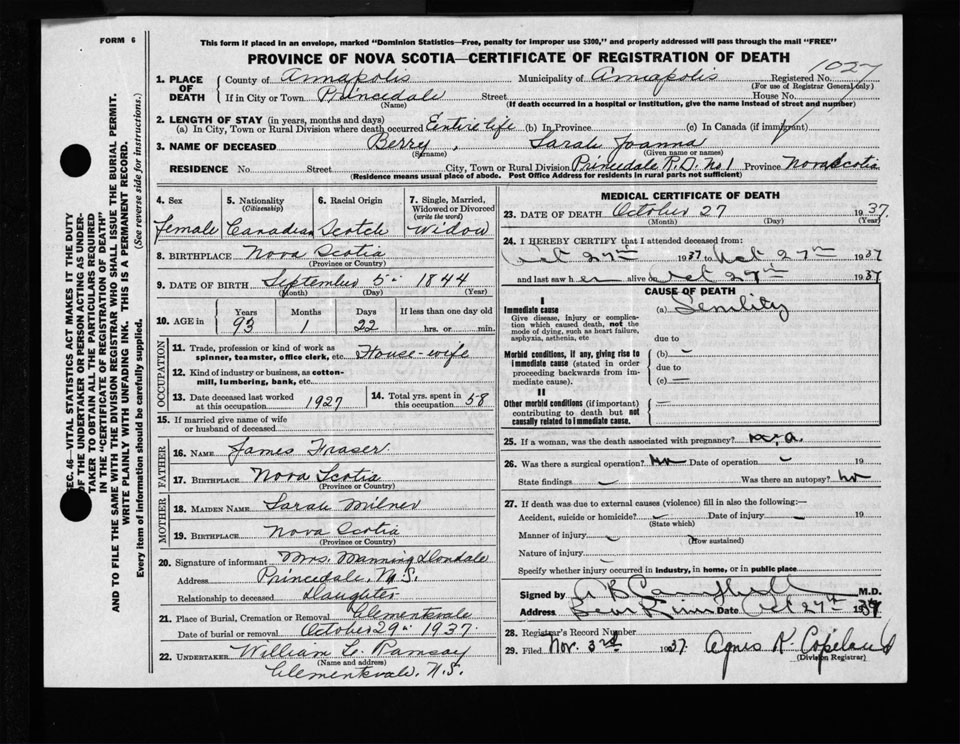 FORM 6
This form if placed in an envelope, marked "Dominion Statistics—Free, penalty for improper use $300," and properly addressed will pass through the mail "FREE"
PROVINCE OF NOVA SCOTIA—CERTIFICATE OF REGISTRATION OF DEATH
1. PLACE OF DEATH County of Annapolis Municipality of Annapolis Registered No. 1027
(For use of Registrar General only)
If in City or Town Princedale Street House No.
(Name) (If death occurred in a hospital or institution, give the name instead of street and number)
2. LENGTH OF STAY (in years, months and days)
(a) In City, Town or Rural Division where death occurred Entire life (b) In Province (c) In Canada (if immigrant)
3. NAME OF DECEASED Berry, Sarah Joanna
(Surname) (Given name or names)
RESIDENCE No. Street City, Town or Rural Division Princedale R.D. No. 1 Province Nova Scotia
(Residence means usual place of abode. Post Office Address for residents in rural parts not sufficient)
SEC. 46—VITAL STATISTICS ACT MAKES IT THE DUTY
OF THE UNDERTAKER OR PERSON ACTING AS UNDER-
TAKER TO OBTAIN ALL THE PARTICULARS REQUIRED
IN THE "CERTIFICATE OF REGISTRATION OF DEATH"
AND TO FILE THE SAME WITH THE DIVISION REGISTRAR WHO SHALL ISSUE THE BURIAL PERMIT.
WRITE PLAINLY WITH UNFADING INK. THIS IS A PERMANENT RECORD.
Every item of information should be carefully supplied. (See reverse side for instructions.)
4. Sex 5. Nationality 6. Racial Origin 7. Single, Married, Widowed or Divorced
(Citizenship) (write the word)
Female Canadian Scotch Widow
8. BIRTHPLACE Nova Scotia
(Province or Country)
9. DATE OF BIRTH September 5 1844
(Month) (Day) (Year)
10. AGE in Years Months Days If less than one day old
93 1 22 hrs. or min.
OCCUPATION
11. Trade, profession or kind of work as spinner, teamster, office clerk, etc. House-wife
12. Kind of industry or business, as cotton-mill, lumbering, bank, etc.
13. Date deceased last worked at this occupation 1927 14. Total yrs. spent in this occupation 58
15. If married give name of wife or husband of deceased
FATHER
16. NAME James Fraser
17. BIRTHPLACE Nova Scotia
(Province or Country)
MOTHER
18. MAIDEN NAME Sarah Milner
19. BIRTHPLACE Nova Scotia
(Province or Country)
20. Signature of informant Mrs. Manning
Address Princedale, N.S.
Relationship to deceased Daughter
21. Place of Burial, Cremation or Removal Clementsvale
Date of burial or removal October 29 1937.
22. UNDERTAKER William L. Ramsay
(Name and address)
Clementsvale, N.S.
MEDICAL CERTIFICATE OF DEATH
23. DATE OF DEATH October 27 1937.
(Month) (Day) (Year)
24. I HEREBY CERTIFY that I attended deceased from:
Oct 27th 1937 to Oct 27th 1937
and last saw her alive on Oct 27th 1937
CAUSE OF DEATH
I
Immediate cause (a) Senility
Give disease, injury or complication which caused death, not the mode of dying, such as heart failure, asphyxia, asthenia, etc
due to
Morbid conditions, if any, giving rise to immediate cause (stated in order proceeding backwards from immediate cause). (b) –
due to
(c) —
II
Other morbid conditions (if important) contributing to death but not causally related to immediate cause.
25. If a woman, was the death associated with pregnancy? no.
26. Was there a surgical operation? No Date of operation 19
State findings Was there an autopsy? no
27. If death was due to external causes (violence) fill in also the following:—
Accident, suicide or homicide? Date of injury 19
(State which)
Manner of injury
(How sustained)
Nature of injury
Specify whether injury occurred in industry, in home, or in public place
Signed by A B Campbell M.D.
Address Bear River Date Oct 27th 1937
28. Registrar's Record Number
29. Filed Nov. 3rd 1937. Agnes K Copeland
(Division Registrar)